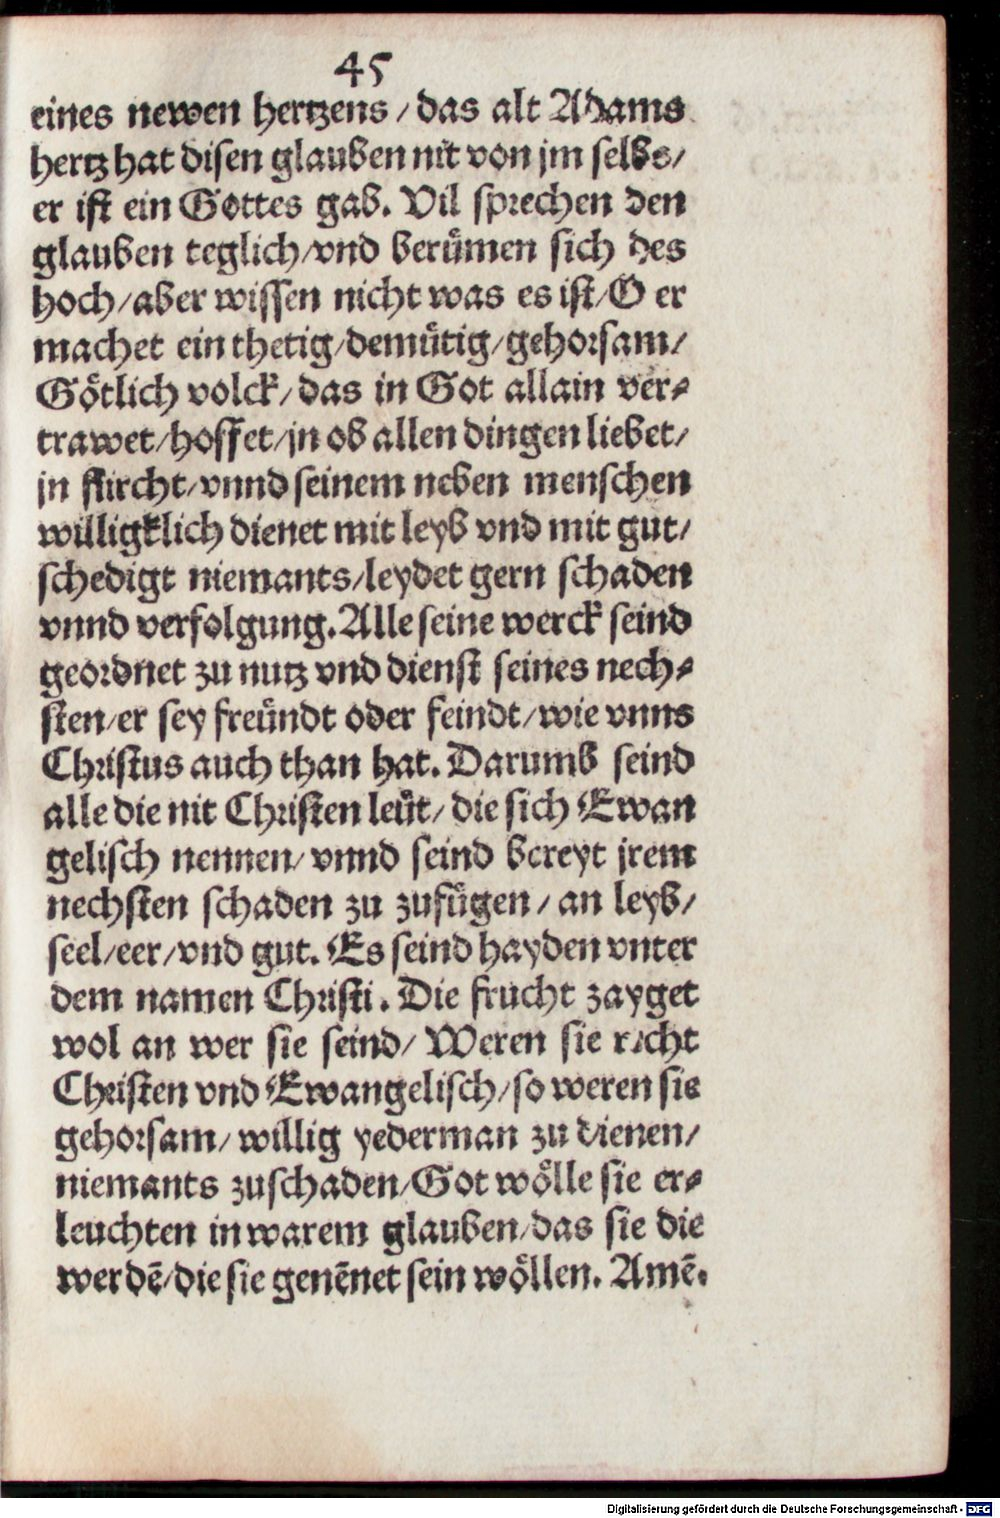 45
eines newen hertzens / das alt Adams
hertz hat disen glauben nit von jm selbs/
er ist ein Gottes gab. Vil sprechen den
glauben teglich/vnd berümen sich des
hoch/aber wissen nicht was es ist/O er
machet ein thetig/demütig/gehorsam/
Götlich volck/das in Got allain ver⸗
trawet/hoffet/jn ob allen dingen liebet/
jn fürcht/vnnd seinem neben menschen
willigklich dienet mit leyb vnd mit gut/
schedigt niemants/leydet gern schaden
vnnd verfolgung. Alle seine werck seind
geordnet zu nutz vnd dienst seines nech⸗
sten/er sey freündt oder feindt/wie vnns
Christus auch than hat. Darumb seind
alle die nit Christen leüt/ die sich Ewan
gelisch nennen/ vnnd seind bereyt jrem
nechsten schaden zu zufügen / an leyb/
seel/eer/vnd gut. Es seind hayden vnter
dem namen Christi. Die frucht zayget
wol an wer sie seind/ Weren sie recht
Christen vnd Ewangelisch/so weren sie
gehorsam/ willig yederman zu dienen/
niemants zuschaden/Got wölle sie er⸗
leuchten in warem glauben/das sie die
werdē/die sie genēnet sein wöllen. Amē.
Digitalisierung gefördert durch die Deutsche Forschungsgemeinschaft - DFG